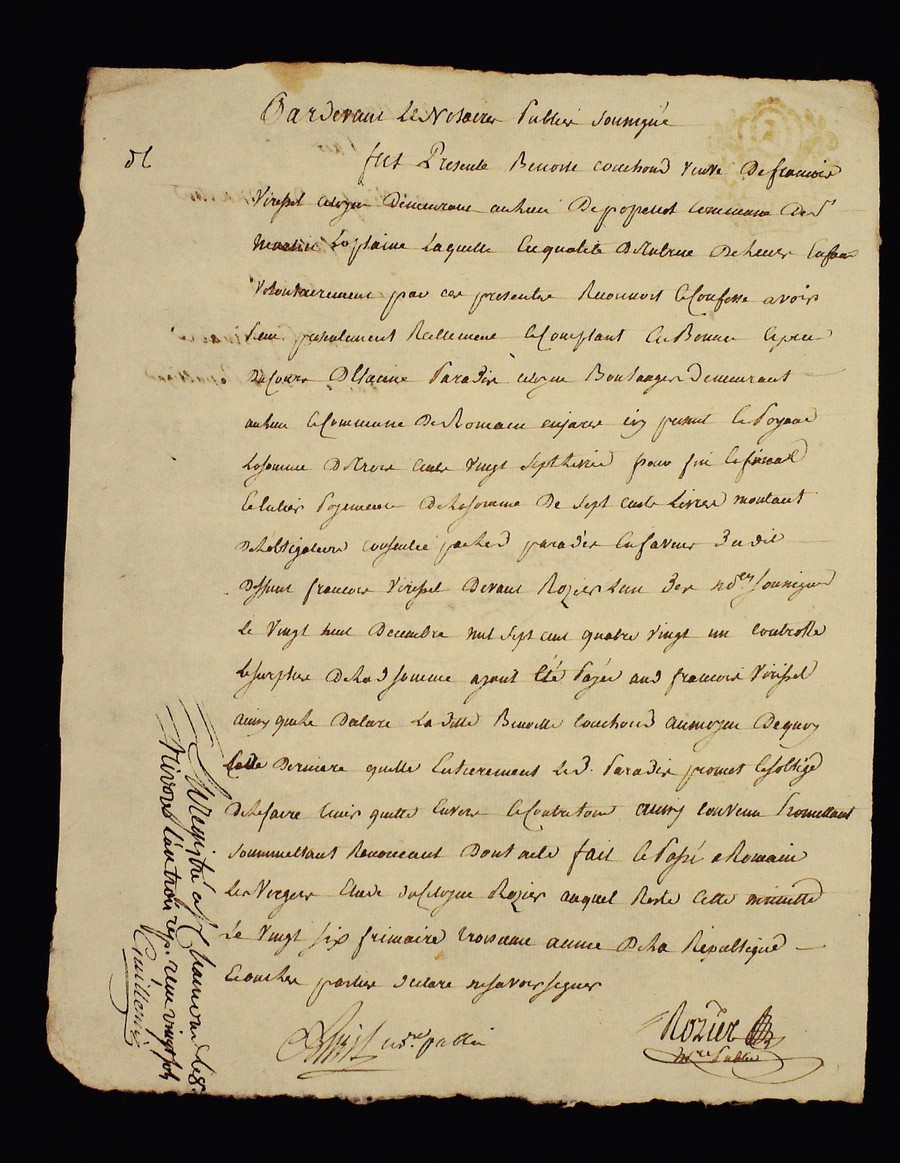 Pardevant Le Notaires Publics Sousigné
fut Presente Benoite couchoud veuve De francois
Virissel citoyen Demeurant au lieu De popetiot Commune De St
Martin Laplaine Laquelle En qualité De Tutrice De leurs Enfans
Volontairement par ces presentes Reconnoit & Confesse avoir
Reçu presentement Réellement & Comptant En Bonnes Especes
Du Cours D'Etienne Paradis citoyen Boulanger Demeurant
au lieu & Commune De Romain enjarez icy present & Payant
La somme De trois cents vingt sept Livres pour fin & final
& Entier Payement De La somme De Sept cents Livres montant
De L'obligation consentie par Led paradis En faveur Du dit
Deffunt francois Virissel Devant Rozier L'un Des nores Sousignés
Le Vingt huit Decembre mil Sept cent quatre vingt un Controllé
Le surplus De La d somme ayant Eté Payé aud francois Virissel
ainsy que La Déclare La ditte Benoitte Couchoud au moyen De quoy
Cette Derniere quitte Entierement Led. Paradis promet & s'oblige
De Le faire tenir quitte Envers & Contre tous ainsy convenu Promettant
Soummettant Renonceant Dont acte fait & Passé a Romain
Les Vergers Etude du Citoyen Rozier auquel Reste Cette minutte
Le Vingt Six frimaire troisieme année De La République
& ont Les parties Declaré ne savoir signer
nore public
Rozier
nore Public
Enregistré a Chamond le 8
Nivose l'an trois rep. reçu vingt sols